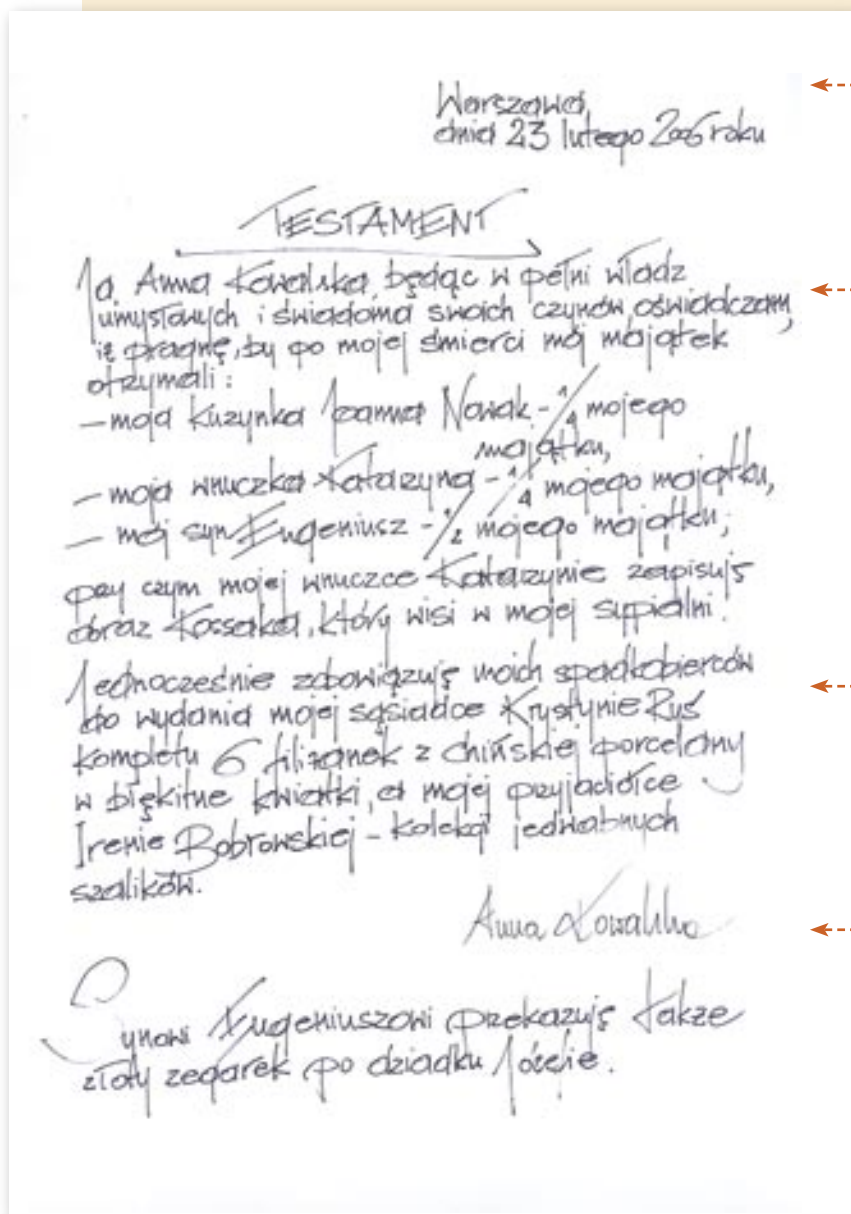 Warszawa,
dnia 23 lutego 2006 roku
TESTAMENT
Ja, Anna Kowalska, będąc w pełni władz
umysłowych i świadoma swoich czynów, oświadczam,
iż pragnę, by po mojej śmierci mój majątek
otrzymali:
– moja kuzynka Joanna Nowak - 1/4 mojego
majątku,
– moja wnuczka Katarzyna - 1/4 mojego majątku,
– mój syn Eugeniusz - 1/2 mojego majątku;
przy czym mojej wnuczce Katarzynie zapisuję
obraz Kossaka, który wisi w mojej sypialni.
Jednocześnie zobowiązuję moich spadkobierców
do wydania mojej sąsiadce Krystynie Ryś
kompletu 6 filiżanek z chińskiej porcelany
w błękitne kwiatki, a mojej przyjaciółce
Irenie Bobrowskiej - kolekcji jedwabnych
szalików.
Anna Kowalska
Synowi Eugeniuszowi przekazuję także
złoty zegarek po dziadku Józefie.